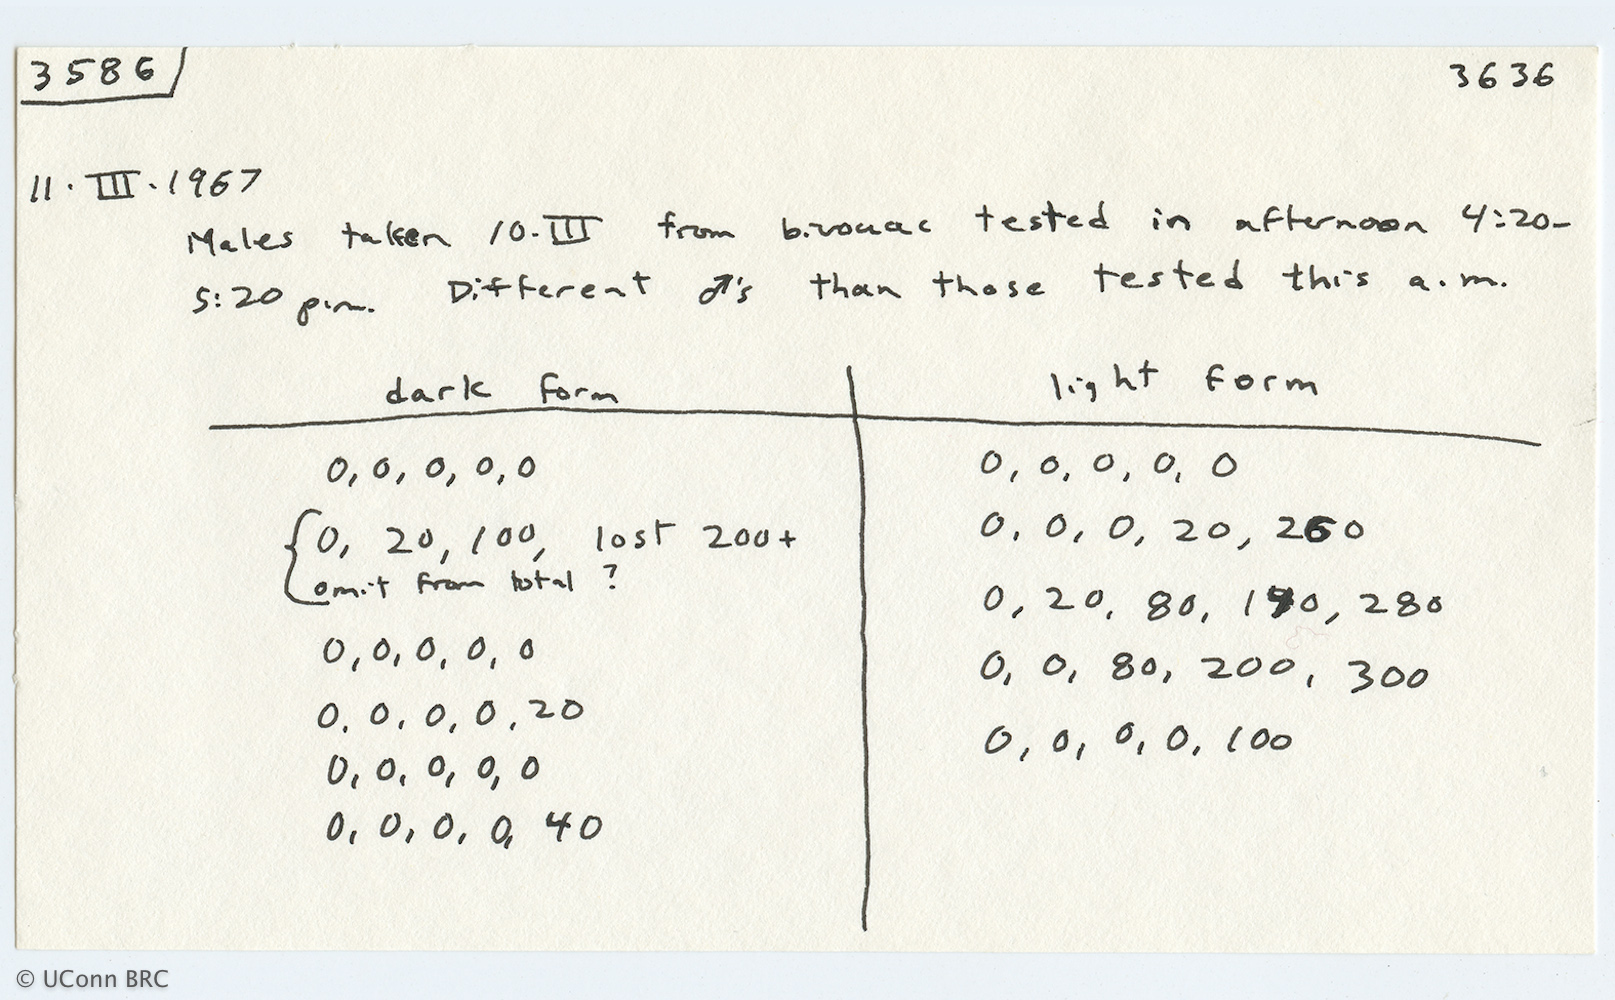 3586 3636
11. III. 1967
Males taken 10. III from bivouac tested in afternoon 4:20-
5:20 p.m. Different ♂'s than those tested this a.m.
dark form light form
0, 0, 0, 0, 0 0, 0, 0, 0, 0
0, 20, 100, lost 200+ 0, 0, 0, 20, 260
omit from total ?
0, 20, 80, 190, 280
0, 0, 0, 0, 0 0, 0, 80, 200, 300
0, 0, 0, 0, 20 0, 0, 0, 0, 100
0, 0, 0, 0, 0
0, 0, 0, 0, 40
© UConn BRC